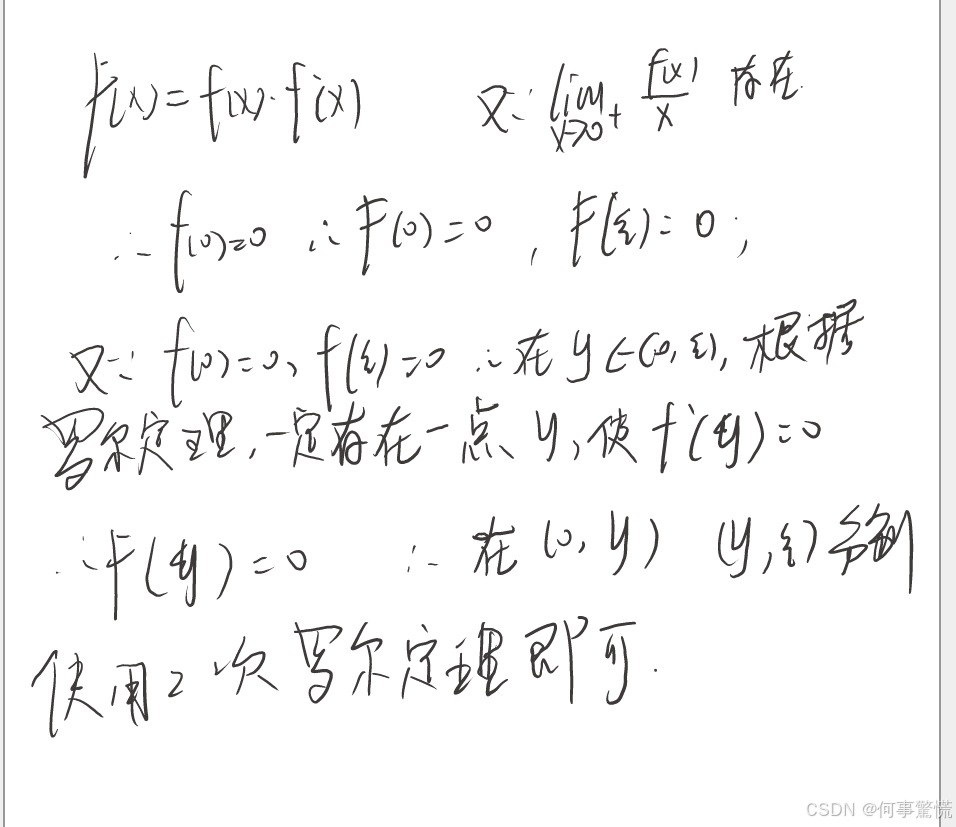 F(x)=f(x)·f'(x) 又∵ lim x→0+ f(x)/x 存在
∴ f(0)=0 ∴ F(0)=0 , F(ξ)=0 ;
又∵ f(0)=0、f(ξ)=0 ∴在 y∈(0,ξ), 根据
罗尔定理,一定存在一点 y,使 f'(y)=0
∴F(y)=0 ∴在 (0, y) (y,ξ)分别
使用2次罗尔定理即可.
CSDN @何事驚慌